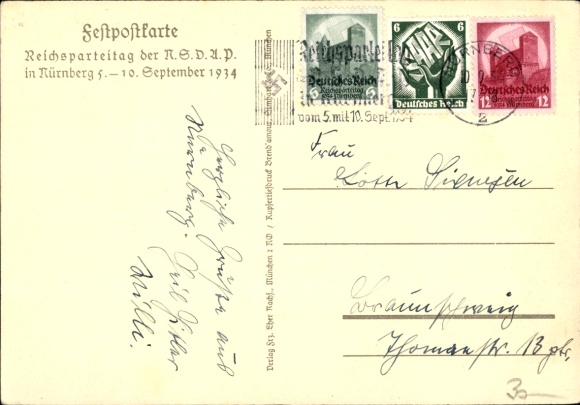 Festpostkarte
Reichsparteitag der N.S.D.A.P.
in Nürnberg 5.-10. September 1934
Reichsparteitag
in Nürnberg
vom 5. mit 10. Sept. 1934
NÜRNBERG
2
5
Deutsches Reich
Reichsparteitag
1934 Nürnberg
5
6
6
SAAR
Deutsches Reich
Deutsches Reich
Reichsparteitag
1934 Nürnberg
12
12
Herzliche Grüße aus
Nürnberg. Heil Hitler
Willi.
Verlag Frz. Eher Nachf., München 2 NO / Kupfertiefdruck Brend'amour, Simhart & Co., München
Frau
Lotte
Braunschweig
Thomaestr. 13 ptr.